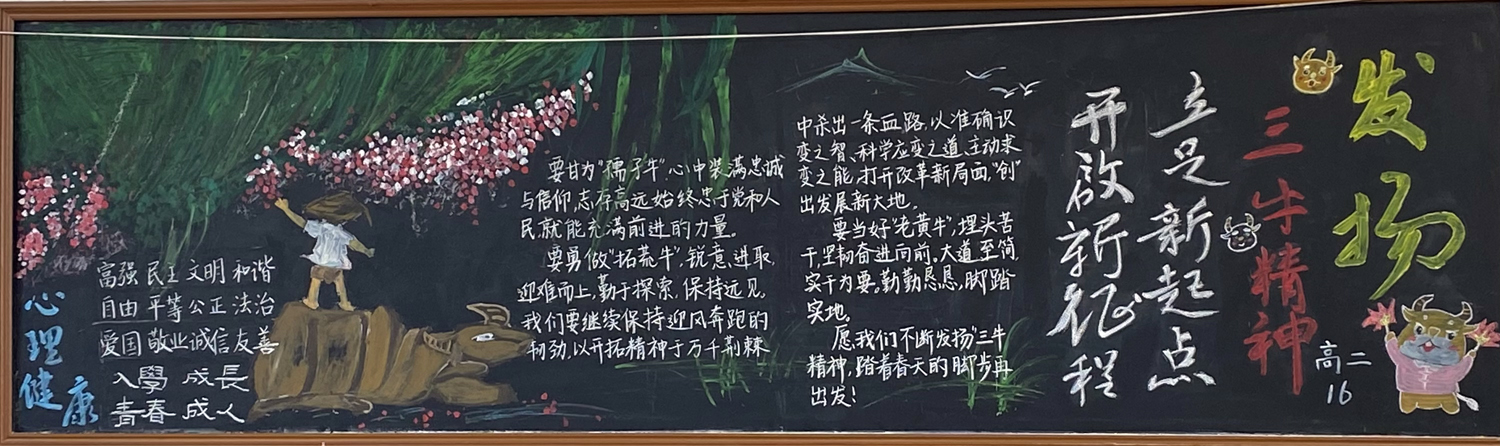 发扬
三牛精神
高二
16
立足新起点
开启新征程
要甘为"孺子牛",心中装满忠诚
与信仰,志存高远始终忠于党和人
民就能充满前进的力量。
要勇做"拓荒牛",锐意进取,
迎难而上,勤于探索,保持远见。
我们要继续保持迎风奔跑的
韧劲,以开拓精神于万千荆棘
中杀出一条血路,以准确识
变之智、科学应变之道、主动求
变之能,打开改革新局面,"创"
出发展新大地。
要当好"老黄牛",埋头苦
干,坚韧奋进向前。大道至简,
实干为要。勤勤恳恳,脚踏
实地。
愿我们不断发扬"三牛
精神,踏着春天的脚步再
出发!
富强 民主 文明 和谐
自由 平等 公正 法治
爱国 敬业 诚信 友善
入學 成長
青春 成人
心理健康